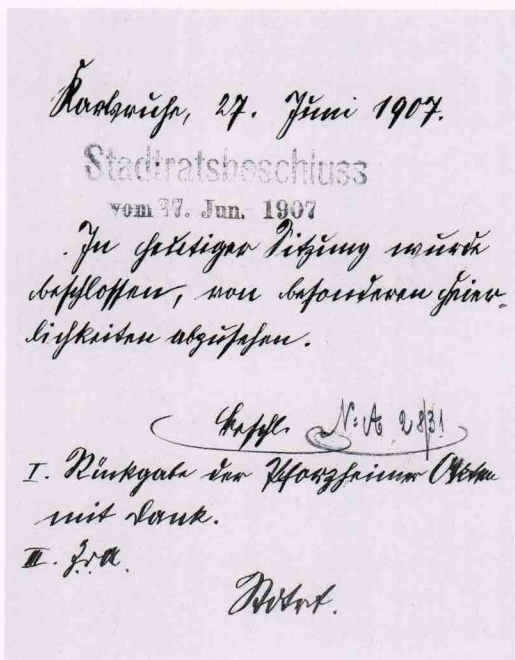 Karlsruhe, 27. Juni 1907.
Stadtratsbeschluss
vom 27. Jun. 1907
In heutiger Sitzung wurde
beschlossen, von besonderen Feier-
lichkeiten abzusehen.
Beschl. N: A 2831
I. Rückgabe der Pforzheimer Akten
mit Dank.
II. z. d. A.
Stdtrt.